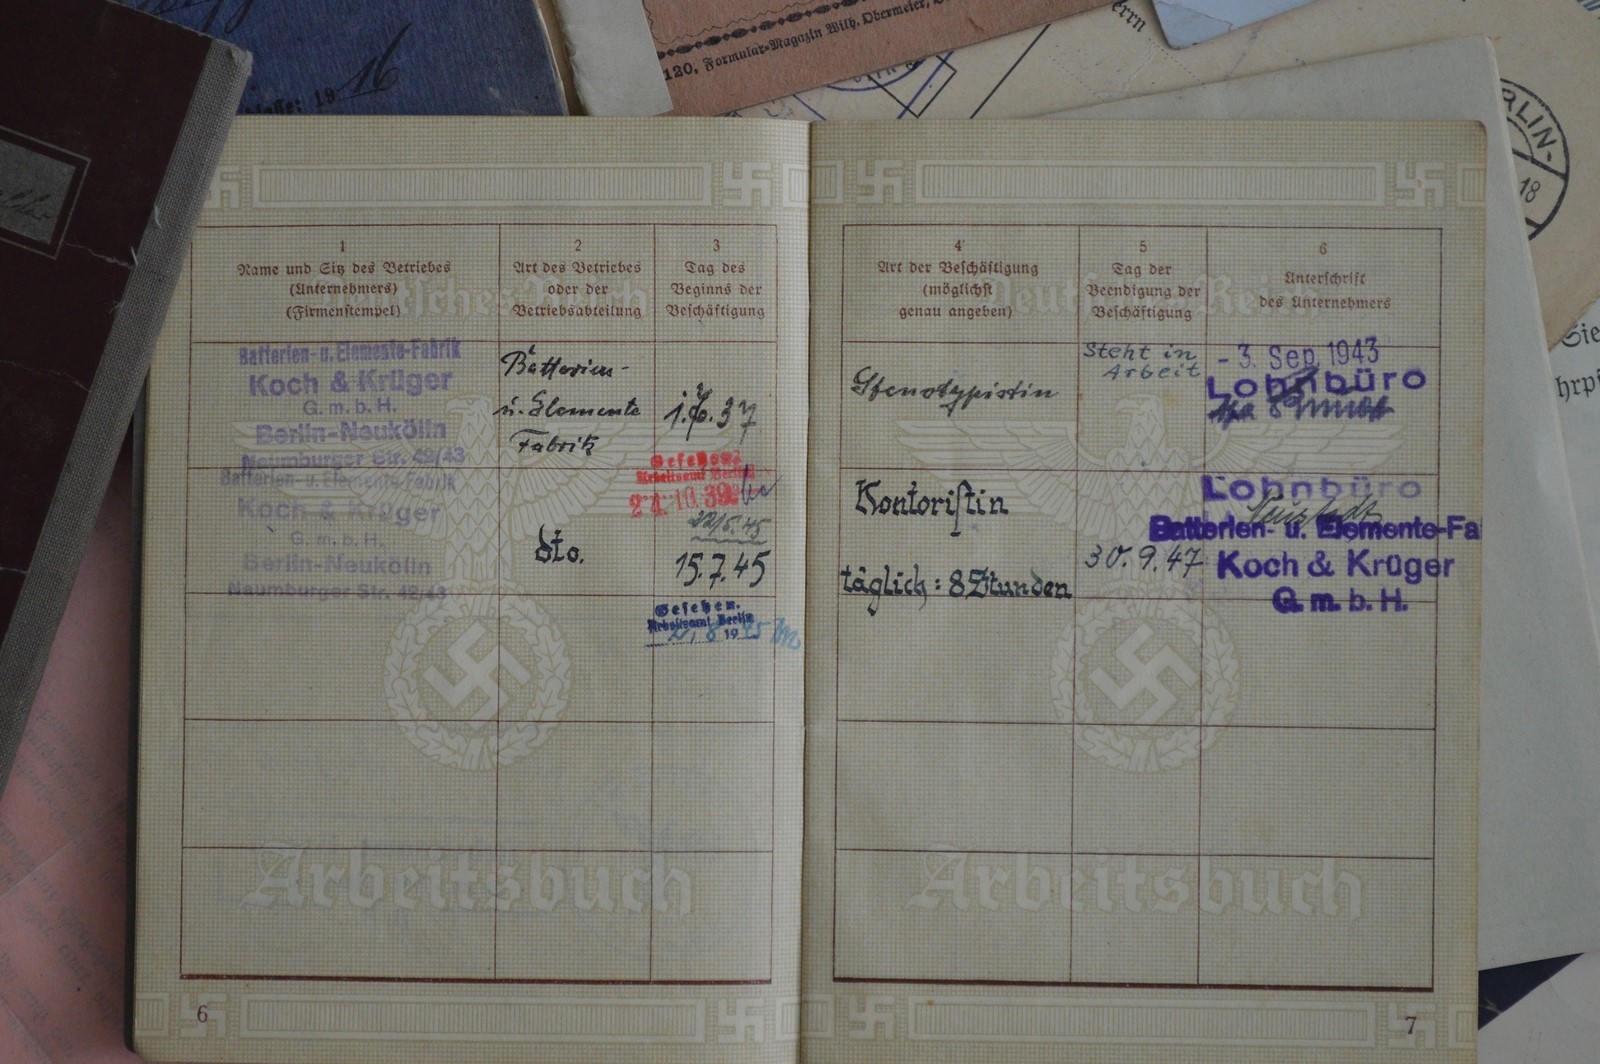 16
120, Formular-Magazin Wilh. Obermeier,
errn
RLIN-
18
Sie
hrpf
1
Name und Sitz des Betriebes
(Unternehmers)
(Firmenstempel)
2
Art des Betriebes
oder der
Betriebsabteilung
3
Tag des
Beginns der
Beschäftigung
4
Art der Beschäftigung
(möglichst
genau angeben)
5
Tag der
Beendigung der
Beschäftigung
6
Unterschrift
des Unternehmers
Deutsches Reich
Deutsches Reich
Batterien- u. Elemente-Fabrik
Koch & Krüger
G. m. b. H.
Berlin-Neukölln
Naumburger Str. 42/43
Batterien-
u. Elemente
Fabrik
1.7.37
Gesehen!
Arbeitsamt Berlin
24.10.39
Stenotypistin
Steht in
Arbeit
- 3. Sep. 1943
Lohnbüro
Batterien- u. Elemente-Fabrik
Koch & Krüger
G. m. b. H.
Berlin-Neukölln
Naumburger Str. 42/43
dto.
22/5.45
15.7.45
Gesehen.
Arbeitsamt Berlin
2. 8. 1945
Kontoristin
täglich: 8 Stunden
30.9.47
Lohnbüro
Batterien- u. Elemente-Fa
Koch & Krüger
G. m. b. H.
Arbeitsbuch
Arbeitsbuch
6
7